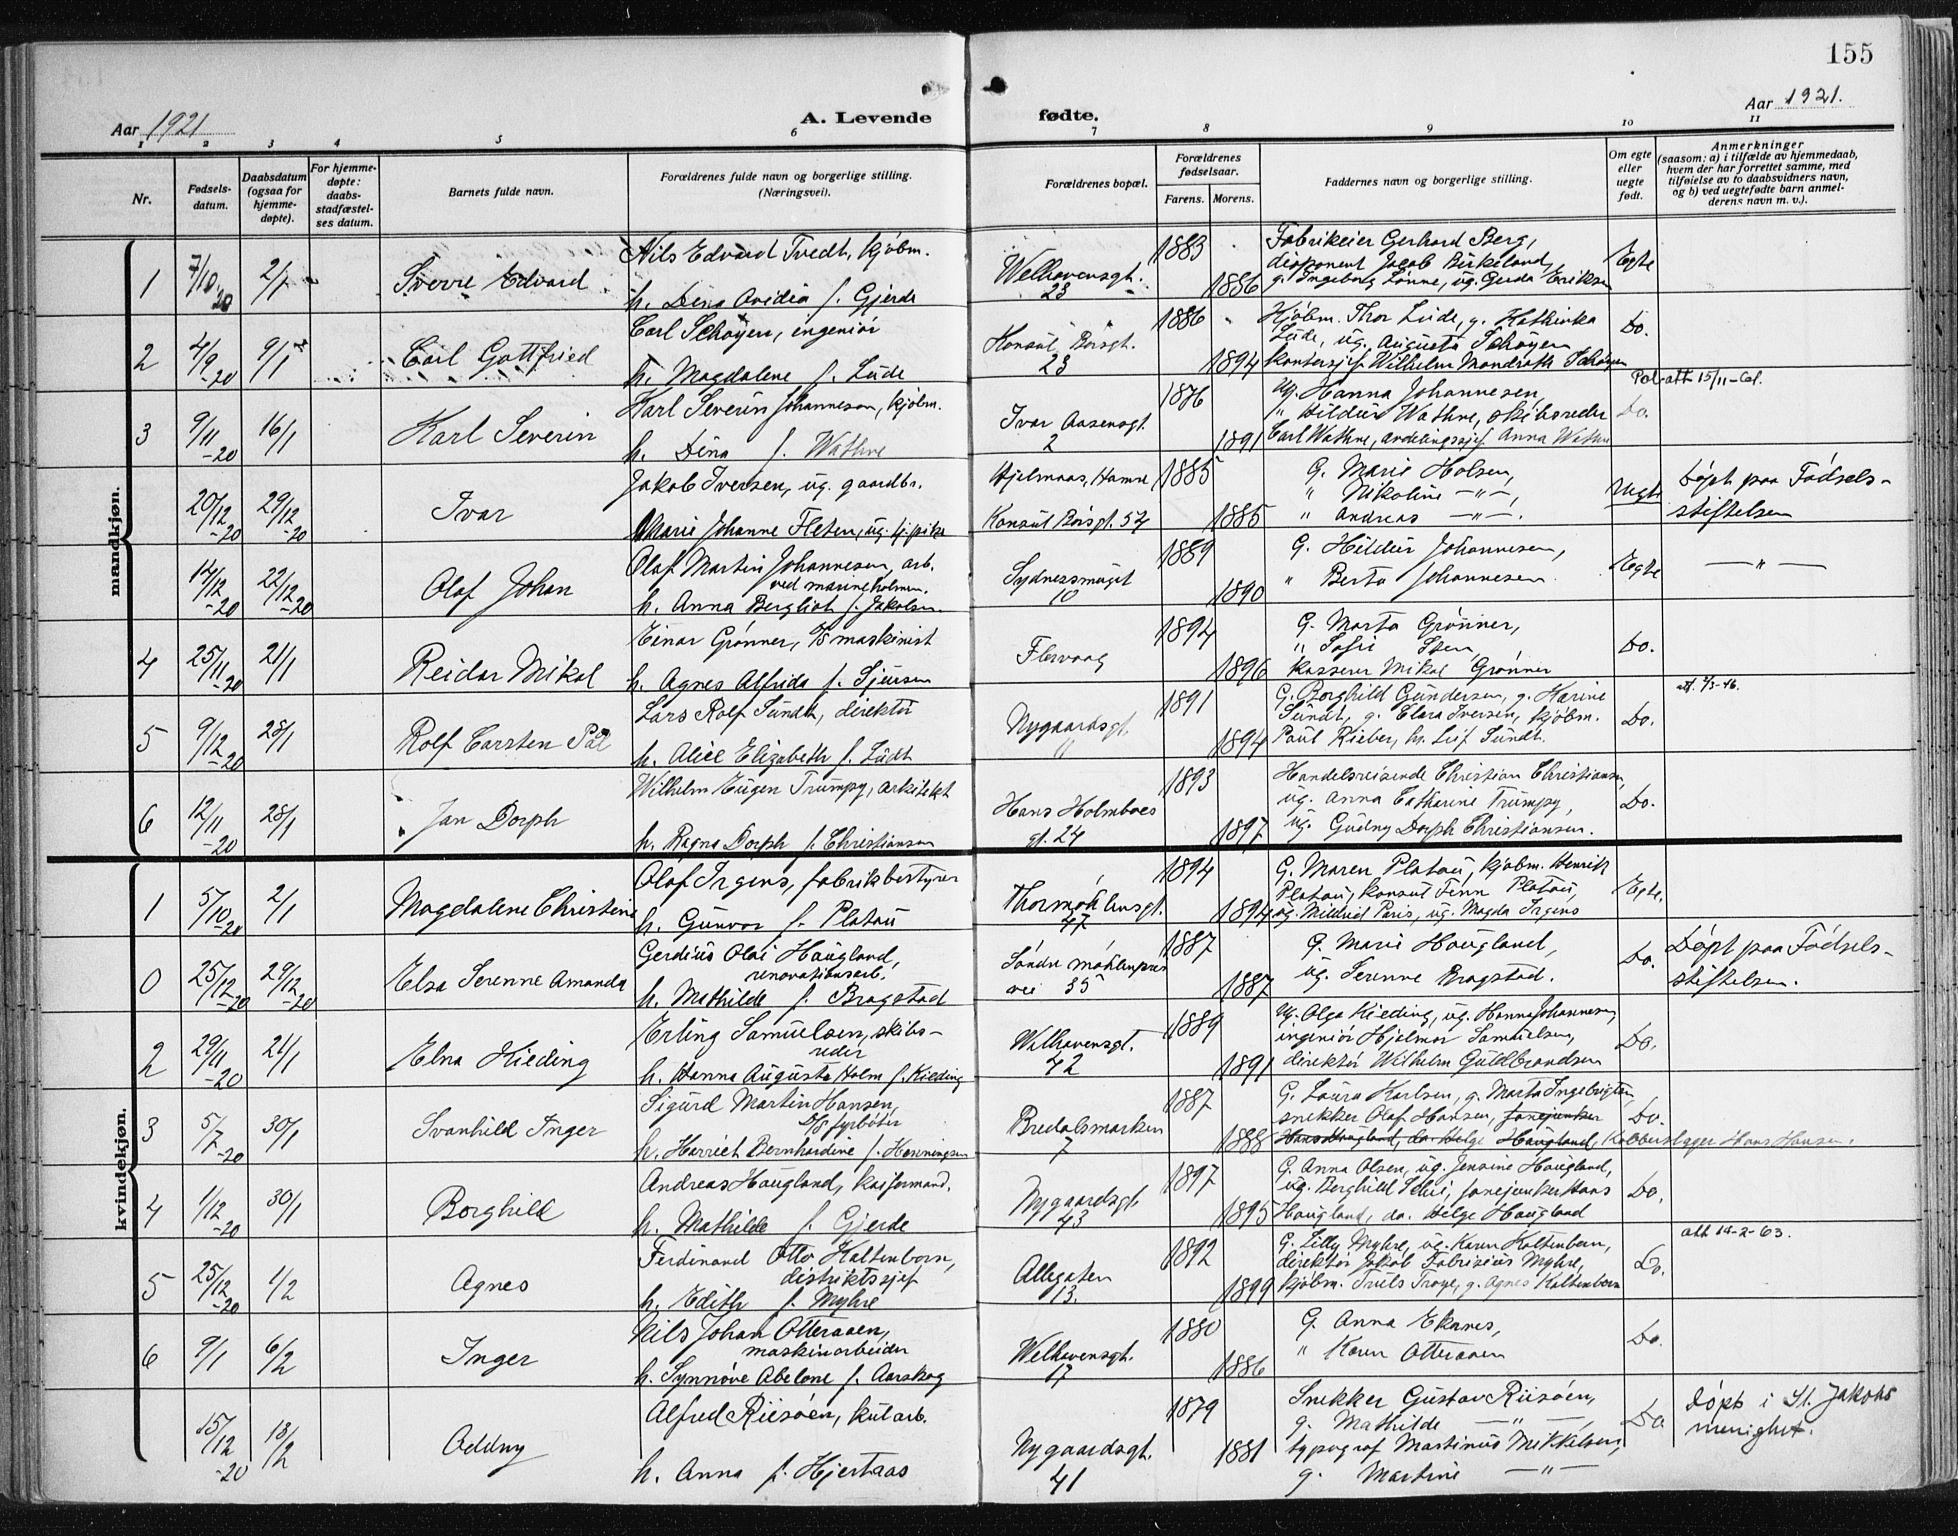 155
Aar 1921
A. Levende
fødte.
Aar 1921.
1 2 3 4 5 6 7 8 9 10 11
Nr.
Fødsels-
datum.
Daabsdatum
(ogsaa for
hjemme-
døpte).
For hjemme-
døpte:
daabs-
stadfæstel-
ses datum.
Barnets fulde navn.
Forældrenes fulde navn og borgerlige stilling.
(Næringsvei).
Forældrenes bopæl.
Forældrenes
fødselsaar.
Farens. Morens.
Faddernes navn og borgerlige stilling.
Om egte
eller
uegte
født.
Anmerkninger
(saasom: a) i tilfælde av hjemmedaab,
hvem der har forrettet samme, med
tilføielse av to daabsvidners navn,
og b) ved uegtefødte barn anmel-
derens navn m. v.).
mandkjøn.
1 7/10-20 2/1 Sverre Edvard
Nils Edvard Tvedt, kjøbm.
h. Dina Ovidia f. Gjerde
Welhavensgt.
23
1883
1886
Fabrikeier Gerhard Berg,
disponent Jacob Birkeland,
g. Ingeborg Lønne, ug. Gerda Eriksen
Egte
2 4/9-20 9/1 Carl Gottfried
Carl Schøyen, ingeniør
h. Magdalene f. Lüde
Konsul Børsgt.
23
1886
1894
Kjøbm. Thor Lüde, g. Kathinka
Lüde, ug. Augusta Schøyen
kontorsjef Wilhelm Mondrath Schøyen
Do.
3 9/11-20 16/1 Karl Severin
Karl Severin Johannesen, kjøbm.
h. Dina f. Wathne
Ivar Aasensgt.
2
1876
1891
Ug. Hanna Johannesen,
" Hildur Wathne, skibsreder
Carl Wathne, avdelingssjef Anna Wathne
Do.
att 15/11
20/12-20 29/12-20 Ivar
Jakob Iversen, ug. gaardbr.
Marie Johanne Fleten, ug. tj.pike
Hjelmaas, Hamre
Konsul Børsgt. 54
1885
1885
G. Marie Holsen,
" Nikoline — " —,
" Andreas — " —.
Uegte
Døpt paa Fødsels-
stiftelsen
14/12-20 22/12-20 Olaf Johan
Olaf Martin Johannesen, arb.
ved marineholmen.
h. Anna Bergliot f. Jakobsen.
Sydnessmuget
10
1889
1890
G. Hildur Johannesen,
" Berta Johannesen.
Egte
— " —
4 25/11-20 21/1 Reidar Mikal
Einar Grønner, D/S maskinist
h. Agnes Alfrida f. Sjursen
Flesvaag
1894
1896
G. Marta Grønner,
" Sofie Steen,
kasserer Mikal Grønner
Do.
5 9/12-20 23/1 Rolf Carsten Pål
Lars Rolf Sundt, direktør
h. Alice Elizabeth f. Lüdt
Nygaardsgt.
11
1891
1894
G. Borghild Gundersen, g. Karine
Sundt, g. Clara Iversen, kjøbm.
Paul Rieber, hr. Leif Sundt.
Do.
att. 4/3-46.
6 12/11-20 23/1 Jan Dorph
Wilhelm Eugen Trumpy, arkitekt
h. Ragna Dorph f. Christiansen
Hans Holmboes
gt. 24
1893
1897
Handelsreisende Christian Christiansen,
ug. Anna Catharine Trumpy,
ug. Gudny Dorph Christiansen.
Do.
kvindekjøn.
1 5/10-20 2/1 Magdalene Christine
Olaf Irgens, fabrikbestyrer
h. Gunvor f. Platou
Thormøhlensgt.
47
1894
1894
G. Maren Platou, kjøbm. Henrik
Platou, konsul Finn Platou,
ug. Mildrid Paris, ug. Magda Irgens
Egte.
0 25/12-20 29/12-20 Elsa Serenne Amanda
Gerdius Olai Haugland,
renovationsarb.
h. Mathilde f. Bragstad
Søndre Møhlenpris
vei 35
1887
1887
G. Marie Haugland,
ug. Serenne Bragstad.
Do.
Døpt paa Fødsels-
stiftelsen.
2 29/11-20 21/1 Elna Kieding
Erling Samuelsen, skibs-
reder
h. Hanna Augusta Holm f. Kieding
Welhavensgt.
42
1889
1891
Ug. Olga Kieding, ug. Hanna Johannesen,
ingeniør Hjalmar Samuelsen,
direktør Wilhelm Guldbrandsen
Do.
3 5/7-20 30/1 Svanhild Inger
Sigurd Martin Hansen,
D/S fyrbøter
h. Harriet Bernhardine f. Henningsen
Bredalsmarken
7
1887
1888
G. Laura Karlsen, g. Marta Ingebrigtsen,
snekker Olaf Hansen, fanejunker
Hans Haugland, do. Helge Haugland, Kobberslager Hans Hansen.
Do.
4 1/12-20 30/1 Borghild
Andreas Haugland, kaiformand.
h. Mathilde f. Gjerde
Nygaardsgt.
43
1897
1895
G. Anna Olsen, ug. Jensine Haugland,
ug. Berghild Selvi, fanejunker Hans
Haugland, do. Helge Haugland
Do.
5 25/12-20 1/2 Agnes
Ferdinand Otto Kaltenborn,
distriktssjef
h. Edith f. Myhre
Allegaten
13.
1892
1899
G. Lilly Myhre, ug. Karen Kaltenborn,
direktør Jakob Fabrizius Myhre,
kjøbm. Truls Troye, g. Agnes Kaltenborn
Do.
att 14-2-63.
6 9/1 6/2 Inger
Nils Johan Otteraaen,
maskinarbeider
h. Synnøve Abelone f. Aarskog
Welhavensgt.
17
1880
1886
G. Anna Ekanes,
" Karen Otteraaen
Do.
15/12-20 13/2 Oddny
Alfred Riisøen, kularb.
h. Anna f. Hjertaas
Nygaardsgt.
41
1879
1881
Snekker Gustav Riisøen,
g. Mathilde — " —,
typograf Martinus Mikkelsen,
g. Martine — " —
Do
Døpt i St. Jakobs
menighet.